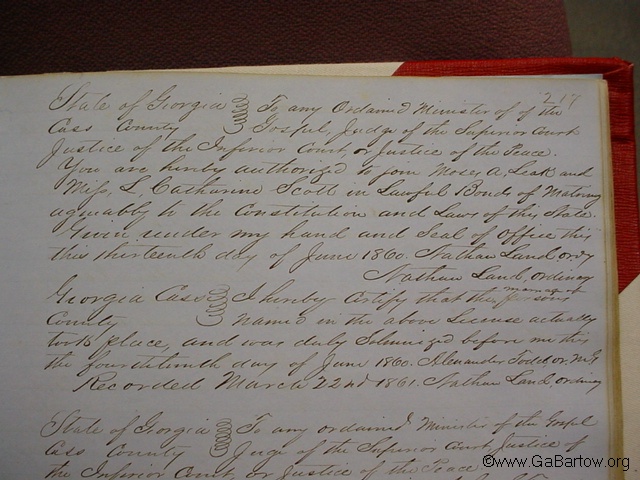 217
State of Georgia To any Ordained Minister of of the
Cass County Gospel, Judge of the Superior Court
Justice of the Inferior Court, or Justice of the Peace.
You are hereby authorized to join Moses A, Leak and
Miss, L, Catharine Scott in Lawful Bonds of Matrimony
agreeably to the Constitution and Laws of this State.
Given under my hand and Seal of Office this
this thirteenth day of June 1860. Nathan Land, ordy
Nathan Land, ordinary
marriage
Georgia Cass I hereby certify that the persons
County named in the above License actually
took place, and was duly Solemnized before me this
the fourteenth day of June 1860. Alexander Todd, or. M.G
Recorded March 22nd 1861. Nathan Land, ordinary
State of Georgia To any ordained Minister of the Gospel
Cass County Juge of the Superior Court, Justice of
the Inferior Court, or Justice of the Peace
©www.GaBartow.org